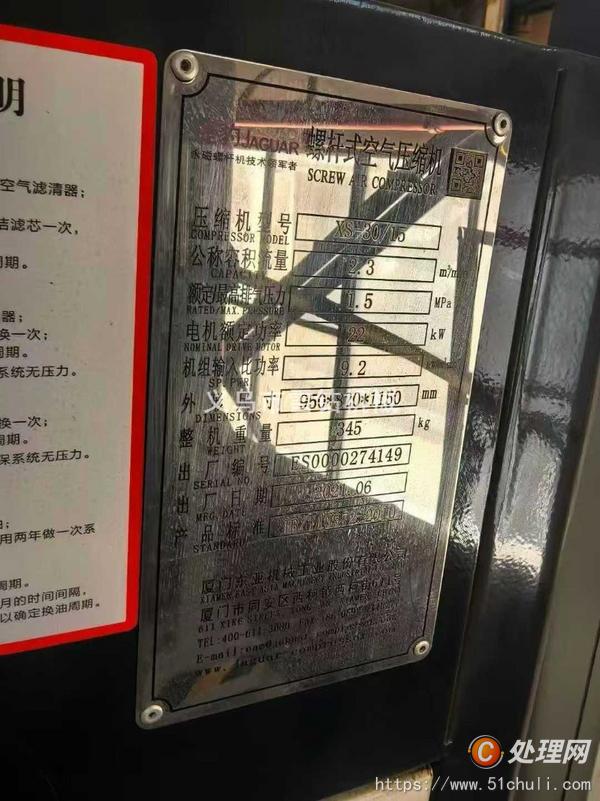 明
空气滤清器；
洁滤芯一次，
周期。
器；
换一次；
周期。
系统无压力。
换一次；
周期。
保系统无压力。
油；
用两年做一次系
周期。
月的时间间隔，
以确定换油周期。
JAGUAR 螺杆式空气压缩机
永磁螺杆机技术领军者 SCREW AIR COMPRESSOR
压缩机型号
COMPRESSOR MODEL
XS-30/15
公称容积流量 2.3 m³/min
CAPACITY
额定/最高排气压力 1.5 MPa
RATED/MAX.PRESSURE
电机额定功率 22 kW
NOMINAL DRIVE MOTOR
机组输入比功率 9.2
SP. PWR
外 寸 950* *1150 mm
DIMENSIONS
整机重量 345 kg
WEIGHT
出厂编号 ES0000274149
SERIAL NO.
出厂日期 2021.06
MFG. DATE
产品标准
STANDARD
厦门东亚机械工业股份有限公司
XIAMEN EAST ASIA MACHINERY
厦门市同安区西柯镇西柯街611号
611 XIKE STREET
TEL:400-611-3080
E-mail:
www.jaguar-compressor.com
处理网
https://www.51chuli.com